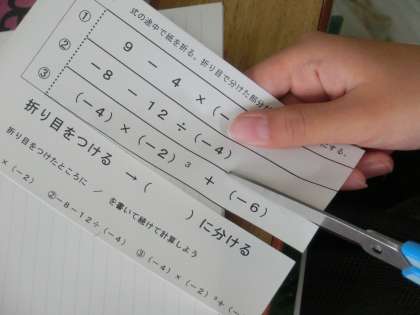 式の途中で紙を折る。折り目で分けた部分
にする。
① 9 － 4 × (－
② －8 － 12 ÷ (－4)
③ (－4) × (－2)³ ＋ (－6)
折り目をつける → ( )に分ける
折り目をつけたところに ／ を書いて続けて計算しよう
× (－2) ②－8－12÷(－4) ③ (－4) × (－2)³＋(－